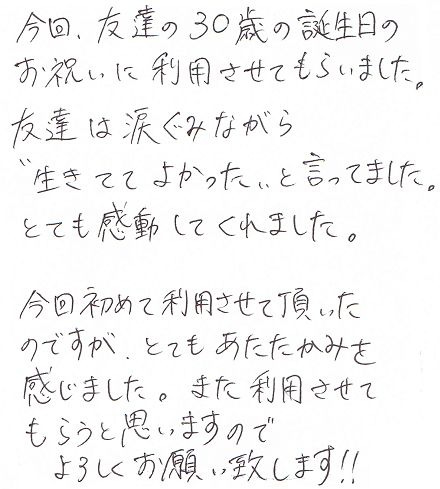 今回、友達の30歳の誕生日の
お祝いに利用させてもらいました。
友達は涙ぐみながら
"生きててよかった"と言ってました。
とても感動してくれました。
今回初めて利用させて頂いた
のですが、とてもあたたかみを
感じました。また利用させて
もらうと思いますので
よろしくお願い致します!!